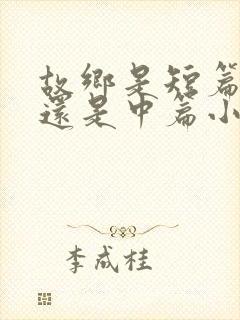 故鄉是短篇
還是中篇小
李成桂